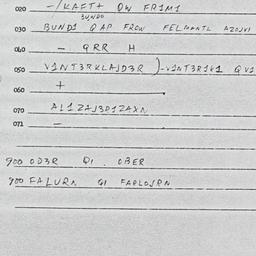 020 -/KAFT+ OW FR1M1
3UNDO
030 BUND1 Q AP FROW FELMANTL AZOJV1
040 - QRR H
050 V1NT3RKLAJD3R )-V1NT3R1K1 QV1
060 +
070 AL1ZAJ3D1ZAXN
071 -
900 OD3R Q1 . OBER
900 FALURN Q1 FAPLOJRN